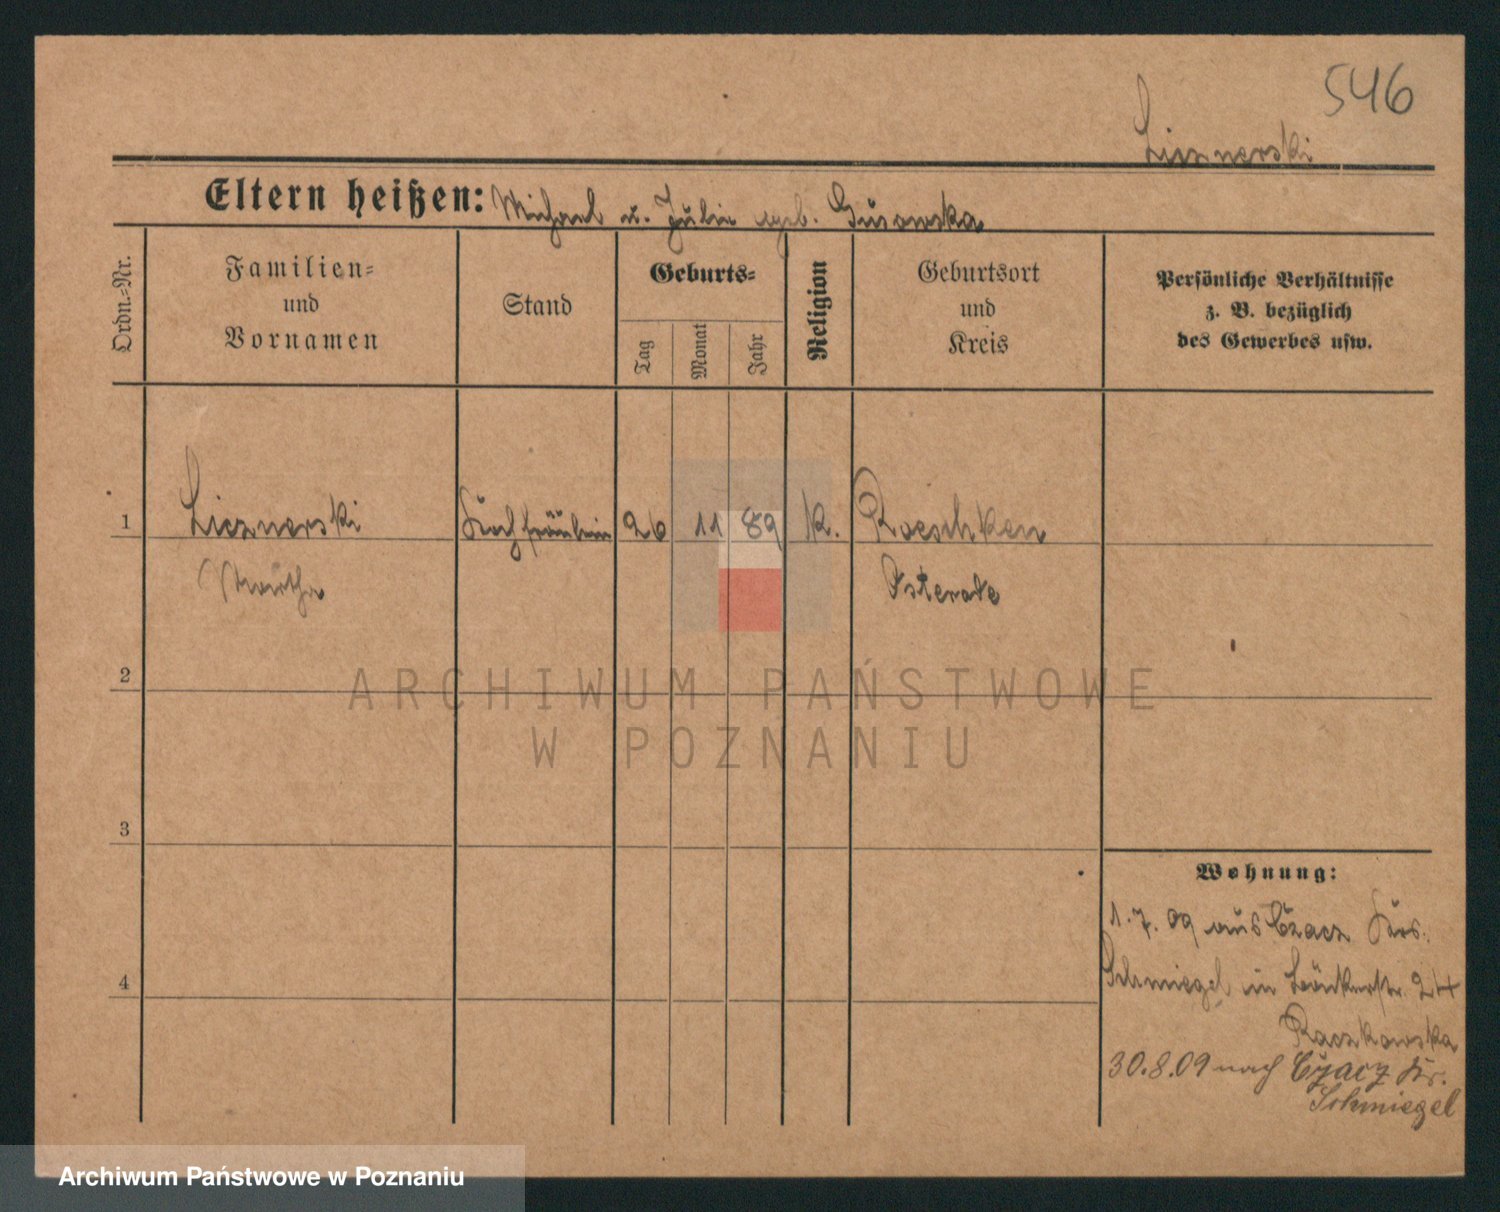 546
Liesnerski
Eltern heißen: Michael u. Julie geb. Gusowska
Ordn.-Nr.
Familien-
und
Vornamen
Stand
Geburts-
Tag
Monat
Jahr
Religion
Geburtsort
und
Kreis
Persönliche Verhältnisse
z. B. bezüglich
des Gewerbes usw.
1 Liesnerski Kochfräulein 26 11 89 K. Roeschken
Martha Osterode
2
ARCHIWUM PAŃSTWOWE
W POZNANIU
3
Wohnung:
1.7.09 aus Czacz Krs.
4
Schmiegel in 24
Raczkowska
30.8.09 nach Czacz Kr.
Schmiegel
Archiwum Państwowe w Poznaniu